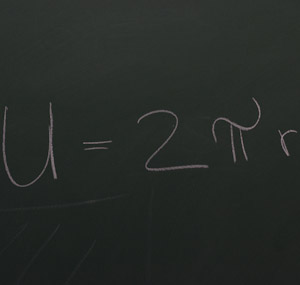 U = 2 π r